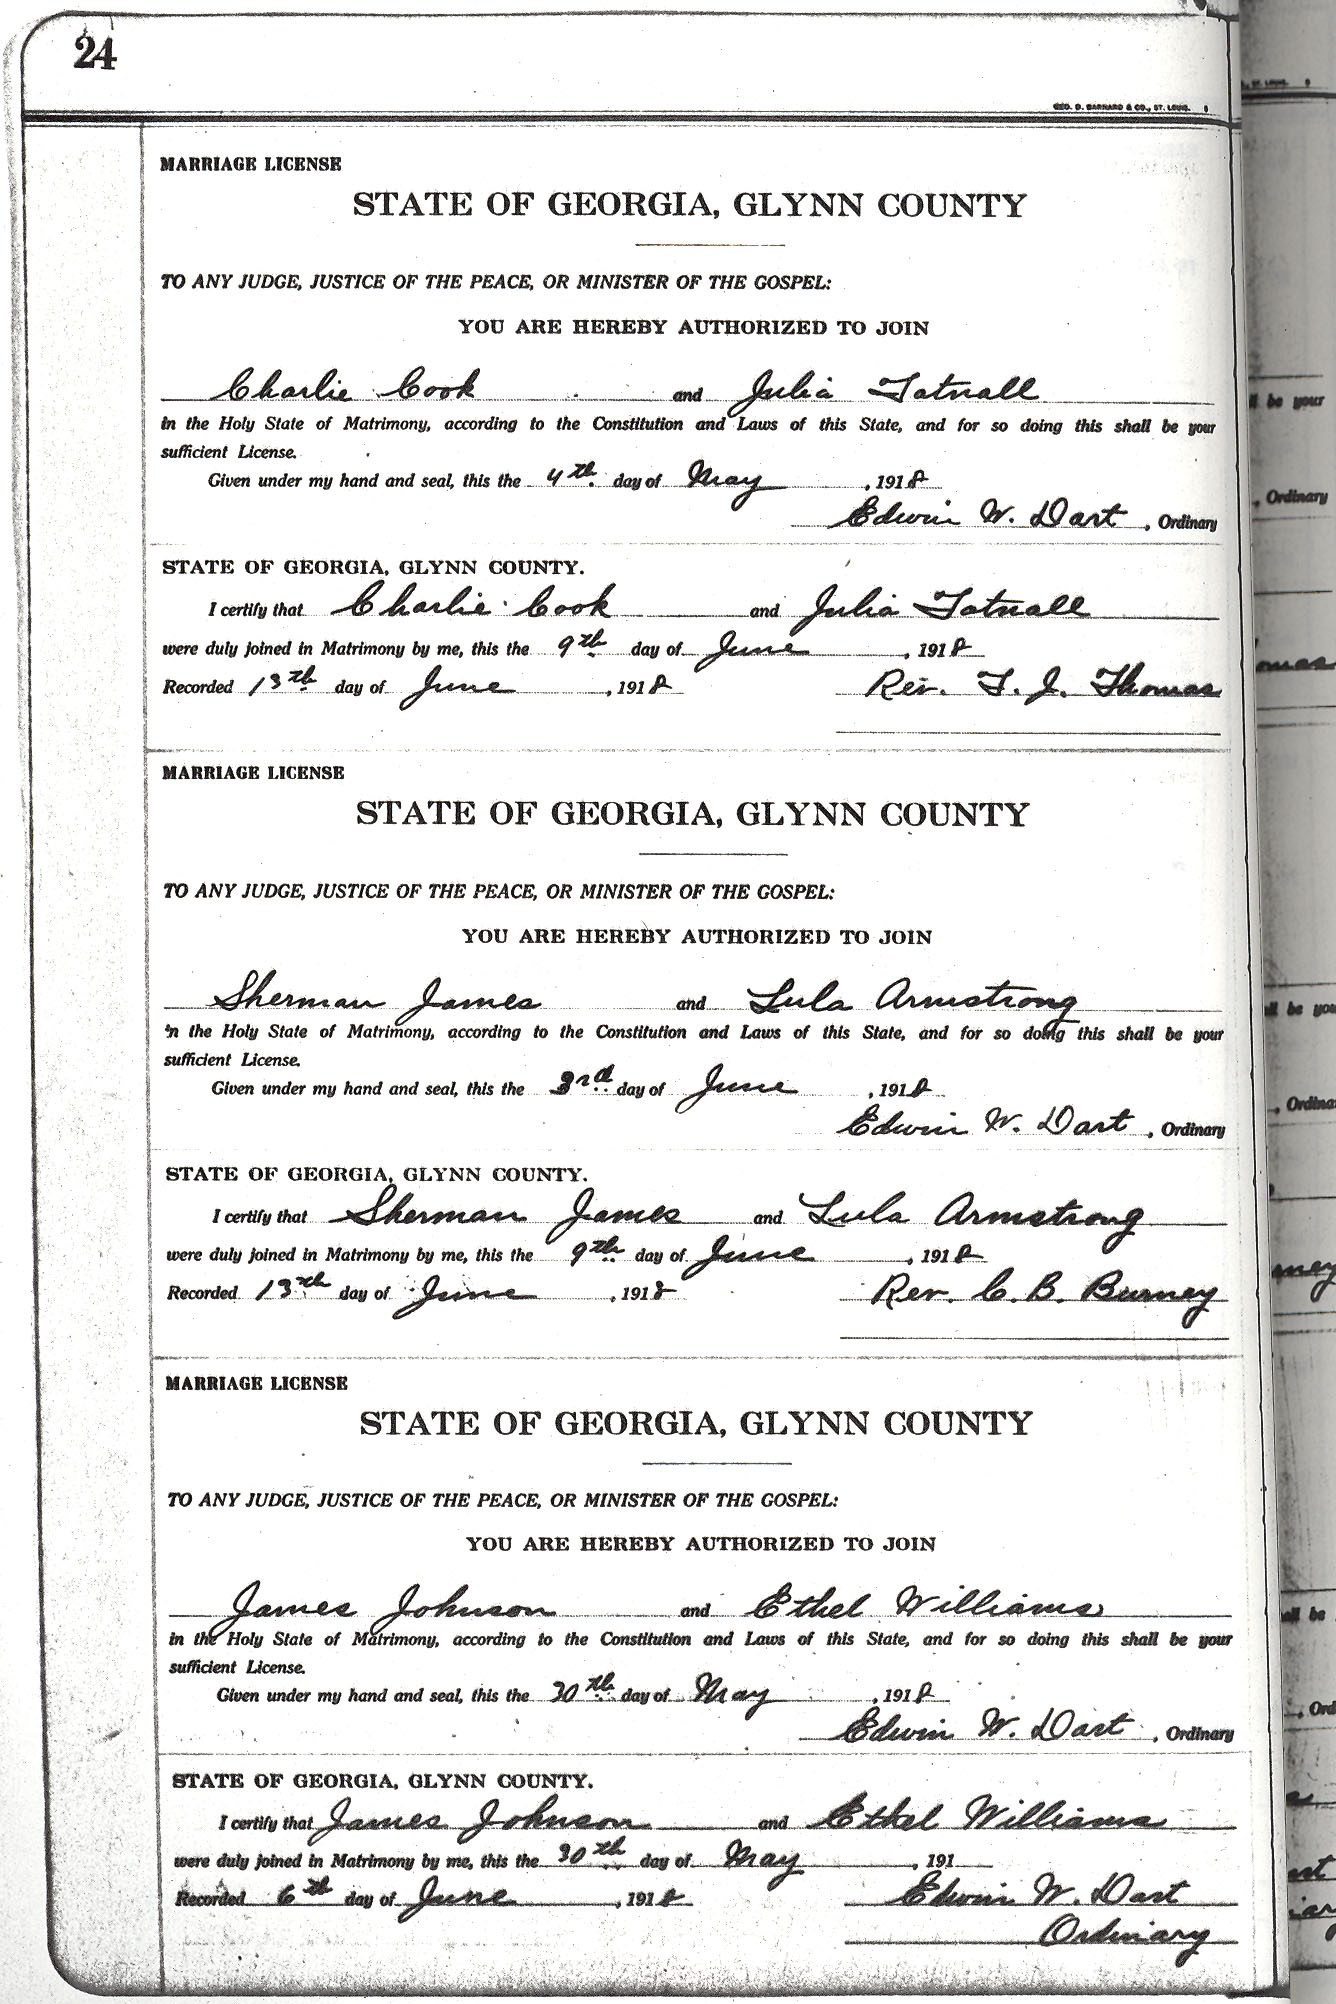 24
GEO. D. BARNARD & CO., ST. LOUIS.
MARRIAGE LICENSE
STATE OF GEORGIA, GLYNN COUNTY
TO ANY JUDGE, JUSTICE OF THE PEACE, OR MINISTER OF THE GOSPEL:
YOU ARE HEREBY AUTHORIZED TO JOIN
Charlie Cook and Julia Tatnall
in the Holy State of Matrimony, according to the Constitution and Laws of this State, and for so doing this shall be your
sufficient License.
Given under my hand and seal, this the 4th day of May, 1918
Edwin W. Dart, Ordinary
STATE OF GEORGIA, GLYNN COUNTY.
I certify that Charlie Cook and Julia Tatnall
were duly joined in Matrimony by me, this the 9th day of June, 1918
Recorded 13th day of June, 1918 Rev. T. J. Thomas
MARRIAGE LICENSE
STATE OF GEORGIA, GLYNN COUNTY
TO ANY JUDGE, JUSTICE OF THE PEACE, OR MINISTER OF THE GOSPEL:
YOU ARE HEREBY AUTHORIZED TO JOIN
Sherman James and Lula Armstrong
in the Holy State of Matrimony, according to the Constitution and Laws of this State, and for so doing this shall be your
sufficient License.
Given under my hand and seal, this the 3rd day of June, 1918
Edwin W. Dart, Ordinary
STATE OF GEORGIA, GLYNN COUNTY.
I certify that Sherman James and Lula Armstrong
were duly joined in Matrimony by me, this the 9th day of June, 1918
Recorded 13th day of June, 1918 Rev. C. B. Burney
MARRIAGE LICENSE
STATE OF GEORGIA, GLYNN COUNTY
TO ANY JUDGE, JUSTICE OF THE PEACE, OR MINISTER OF THE GOSPEL:
YOU ARE HEREBY AUTHORIZED TO JOIN
James Johnson and Ethel Williams
in the Holy State of Matrimony, according to the Constitution and Laws of this State, and for so doing this shall be your
sufficient License.
Given under my hand and seal, this the 30th day of May, 1918
Edwin W. Dart, Ordinary
STATE OF GEORGIA, GLYNN COUNTY.
I certify that James Johnson and Ethel Williams
were duly joined in Matrimony by me, this the 30th day of May, 191
Recorded 6th day of June, 1918 Edwin W. Dart
Ordinary